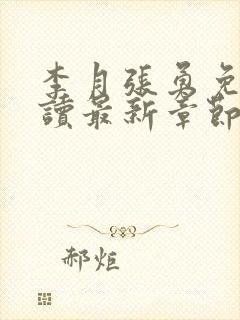 李月張勇免
讀最新章節
郝炬